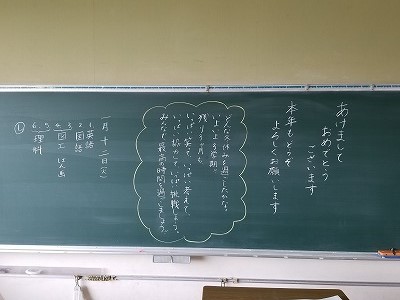 あけまして
おめでとう
ございます
本年もどうぞ
よろしくお願いします
どんな冬休みを過ごしたかな。
いよいよ3学期！
残り3か月も
いっぱい笑って、いっぱい考えて、
いっぱい転んで、いっぱい挑戦しよう。
みんなで最高の時間を過ごしましょう。
一月十二日(火)
1. 英語
2. 国語
3.
4. 図工 はん画
5.
6. 理科
①